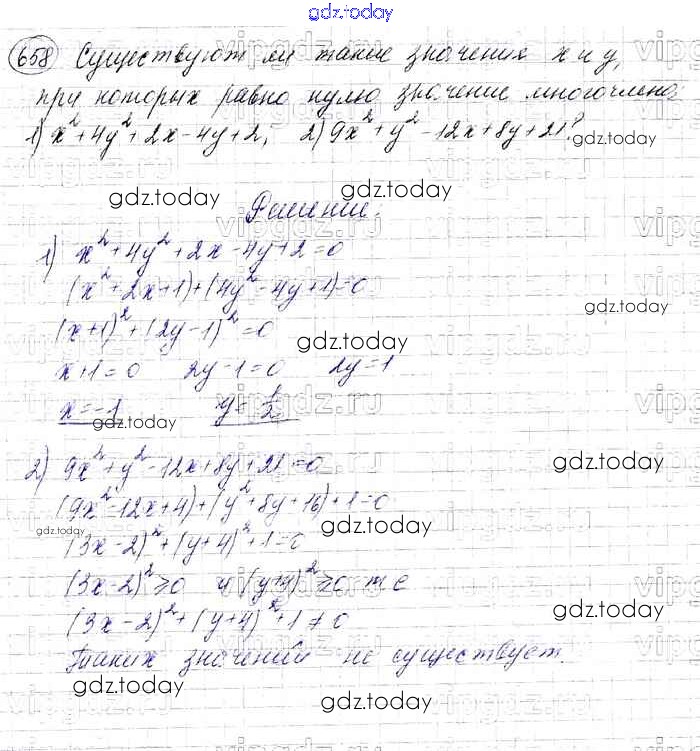 gdz.today
658 Существуют ли такие значения x и y,
при которых равно нулю значение многочлена:
1) x²+4y²+2x-4y+2; 2) 9x²+y²-12x+8y+21?
gdz.today
gdz.today
gdz.today
Решение.
1) x²+4y²+2x-4y+2=0
(x²+2x+1)+(4y²-4y+1)=0
gdz.today
(x+1)²+(2y-1)²=0
gdz.today
x+1=0 2y-1=0 2y=1
x=-1 y=1/2
gdz.today
2) 9x²+y²-12x+8y+21=0
gdz.today
(9x²-12x+4)+(y²+8y+16)+1=0
gdz.today
gdz.today
(3x-2)²+(y+4)²+1=0
(3x-2)²≥0 и (y+4)²≥0, т.е
gdz.today
(3x-2)²+(y+4)²+1≠0
Таких значений не существует.
gdz.today
gdz.today